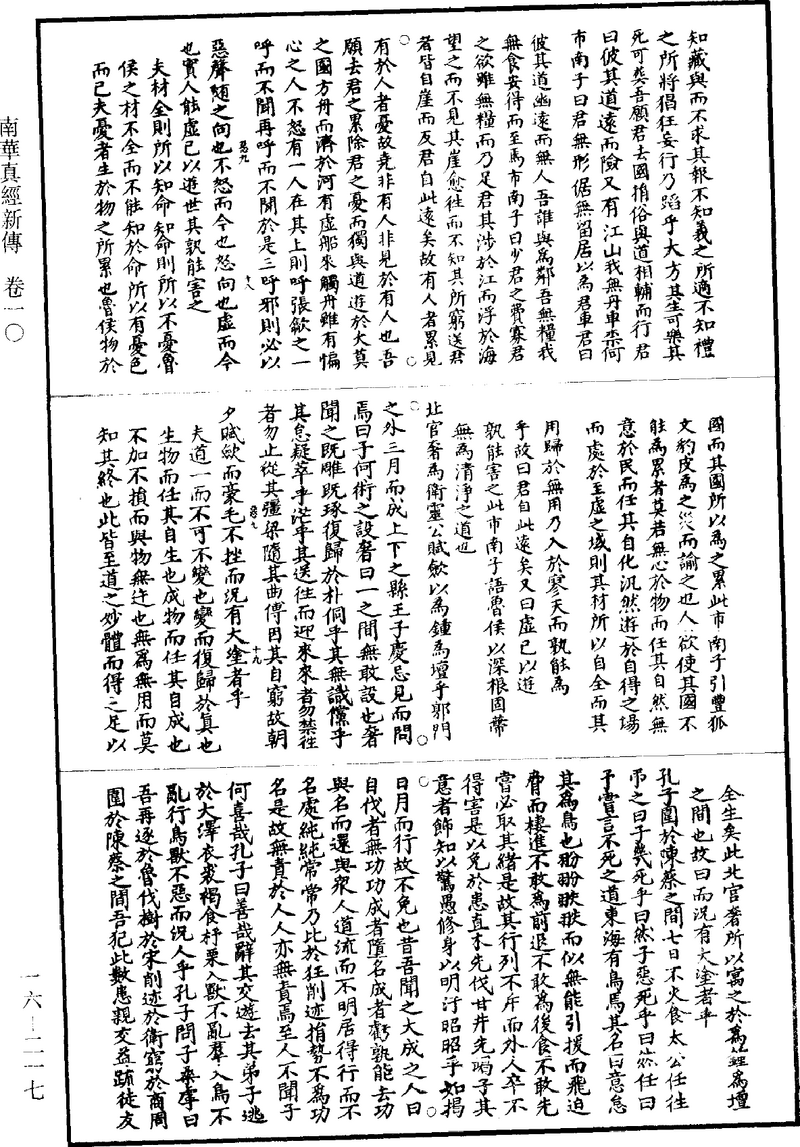 南華真經新傳　卷一〇
知藏與而不求其報不知義之所適不知禮
之所將猖狂妄行乃蹈乎大方其生可樂其
死可葬吾願君去國捐俗與道相輔而行君
曰彼其道遠而險又有江山我無舟車柰何
市南子曰君無形倨無留居以為君車君曰
彼其道幽遠而無人吾誰與為鄰吾無糧我
無食安得而至焉市南子曰少君之費寡君
之欲雖無糧而乃足君其涉於江而浮於海
望之而不見其崖愈往而不知其所窮送君
者皆自崖而反君自此遠矣故有人者累見
有於人者憂故堯非有人非見於有人也吾
願去君之累除君之憂而獨與道遊於大莫
之國方舟而濟於河有虛船來觸舟雖有惼
心之人不怒有一人在其上則呼張歙之一
呼而不聞再呼而不聞於是三呼邪則必以
惡聲隨之向也不怒而今也怒向也虛而今
也實人能虛已以遊世其孰能害之
夫材全則所以知命知命則所以不憂魯
侯之材不全而不能知於命所以有憂色
而已夫憂者生於物之所累也魯侯物於
國而其國所以為之累此市南子引豐狐
文豹皮為之災而諭之也人欲使其國不
能為累者莫若無心於物而任其自然無
意於民而任其自化汎然遊於自得之場
而處於至虛之域則其材所以自全而其
用歸於無用乃入於寥天而孰能為
乎故曰君自此遠矣又曰虛已以遊
孰能害之此市南子語魯侯以深根固蔕
無為清淨之道也
北宮奢為衛靈公賦歛以為鍾為壇乎郭門
之外三月而成上下之縣王子慶忌見而問
焉曰子何術之設奢曰一之間無敢設也奢
聞之既雕既琢復歸於朴侗乎其無識儻乎
其怠疑萃乎茫乎其送往而迎來來者勿禁往
者勿止從其彊梁隨其曲傅因其自窮故朝
夕賦歛而毫毛不挫而況有大塗者乎
夫道一而不可不變也變而復歸於真也
生物而任其自生也成物而任其自成也
不加不損而與物無迕也無為無用而莫
知其終也此皆至道之妙體而得之足以
全生矣此北宮奢所以寓之於為鍾為壇
之間也故曰而況有大塗者乎
孔子圍於陳蔡之間七日不火食太公任往
弔之曰子幾死乎曰然子惡死乎曰然任曰
予嘗言不死之道東海有鳥焉其名曰意怠
其為鳥也翂翂翐翐而似無能引援而飛迫
脅而棲進不敢為前退不敢為後食不敢先
嘗必取其緒是故其行列不斥而外人卒不
得害是以免於患直木先伐甘井先竭子其
意者飾知以驚愚修身以明汙昭昭乎如揭
日月而行故不免也昔吾聞之大成之人曰
自伐者無功功成者隳名成者虧孰能去功
與名而還與眾人道流而不明居得行而不
名處純純常常乃比於狂削迹捐勢不為功
名是故無責於人人亦無責焉至人不聞子
何喜哉孔子曰善哉辭其交遊去其弟子逃
於大澤衣裘褐食杼栗入獸不亂羣入鳥不
亂行鳥獸不惡而況人乎孔子問子桑雽曰
吾再逐於魯伐樹於宋削迹於衛窮於商周
圍於陳蔡之間吾犯此數患親交益疏徒友
一六—二一七